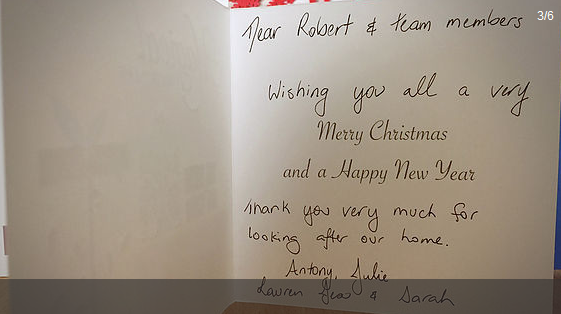 3/6
Dear Robert & team members
Wishing you all a very
Merry Christmas
and a Happy New Year
Thank you very much for
looking after our home.
Antony, Julie
Lauren & Sarah